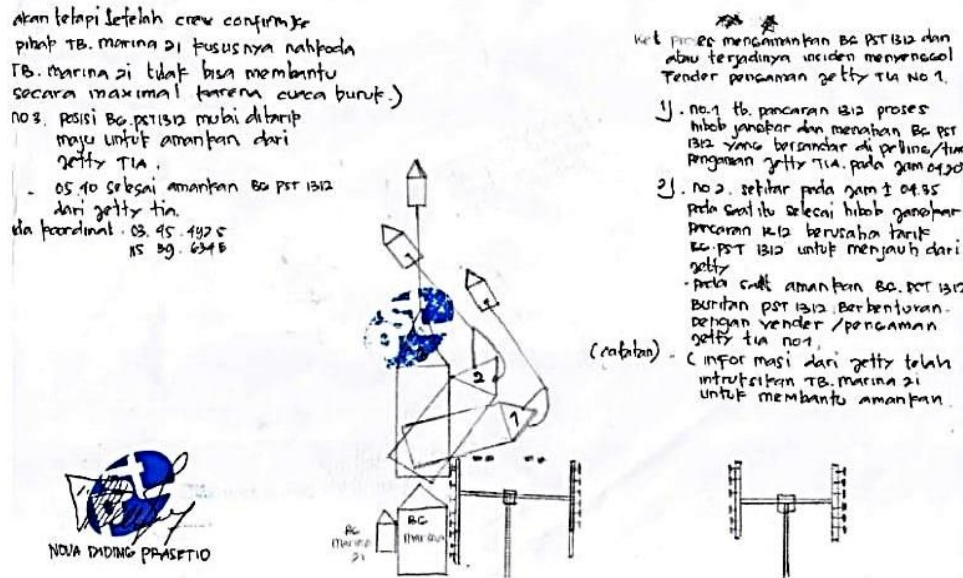 akan tetapi setelah crew confirm ke
pihak TB. marina 21 kususnya nahkoda
TB. marina 21 tidak bisa membantu
secara maximal karena cuaca buruk.)
no 3. posisi BG. PST 1312 mulai ditarik
maju untuk amankan dari
jetty TIA.
- 05.40 selesai amankan BG PST 1312
dari jetty tia.
da koordinat. 03. 45. 492 S
115 39. 634 E
Ket proses mengamankan BG PST 1312 dan
atau terjadinya inciden menyenggol
Tender pengaman jetty TIA NO 1.
1). no.1 tb. pancaran 1312 proses
hibob jangkar dan menahan BG PST
1312 yang bersandar di
pengaman jetty TIA. pada jam 04.20
2). no 2. sekitar pada jam ± 04.35
pada saat itu selesai hibob jangkar
pancaran 1312 berusaha tarik
BG. PST 1312 untuk menjauh dari
jetty
- pada saat amankan BG. PST 1312
Buritan PST 1312. Berbenturan
Dengan vender / pengaman
jetty tia no 1.
(catatan) - (informasi dari jetty telah
intruksikan TB. marina 21
untuk membantu amankan
2
1
BG
marina
21
BG
NOVA DIDING PRASETIO